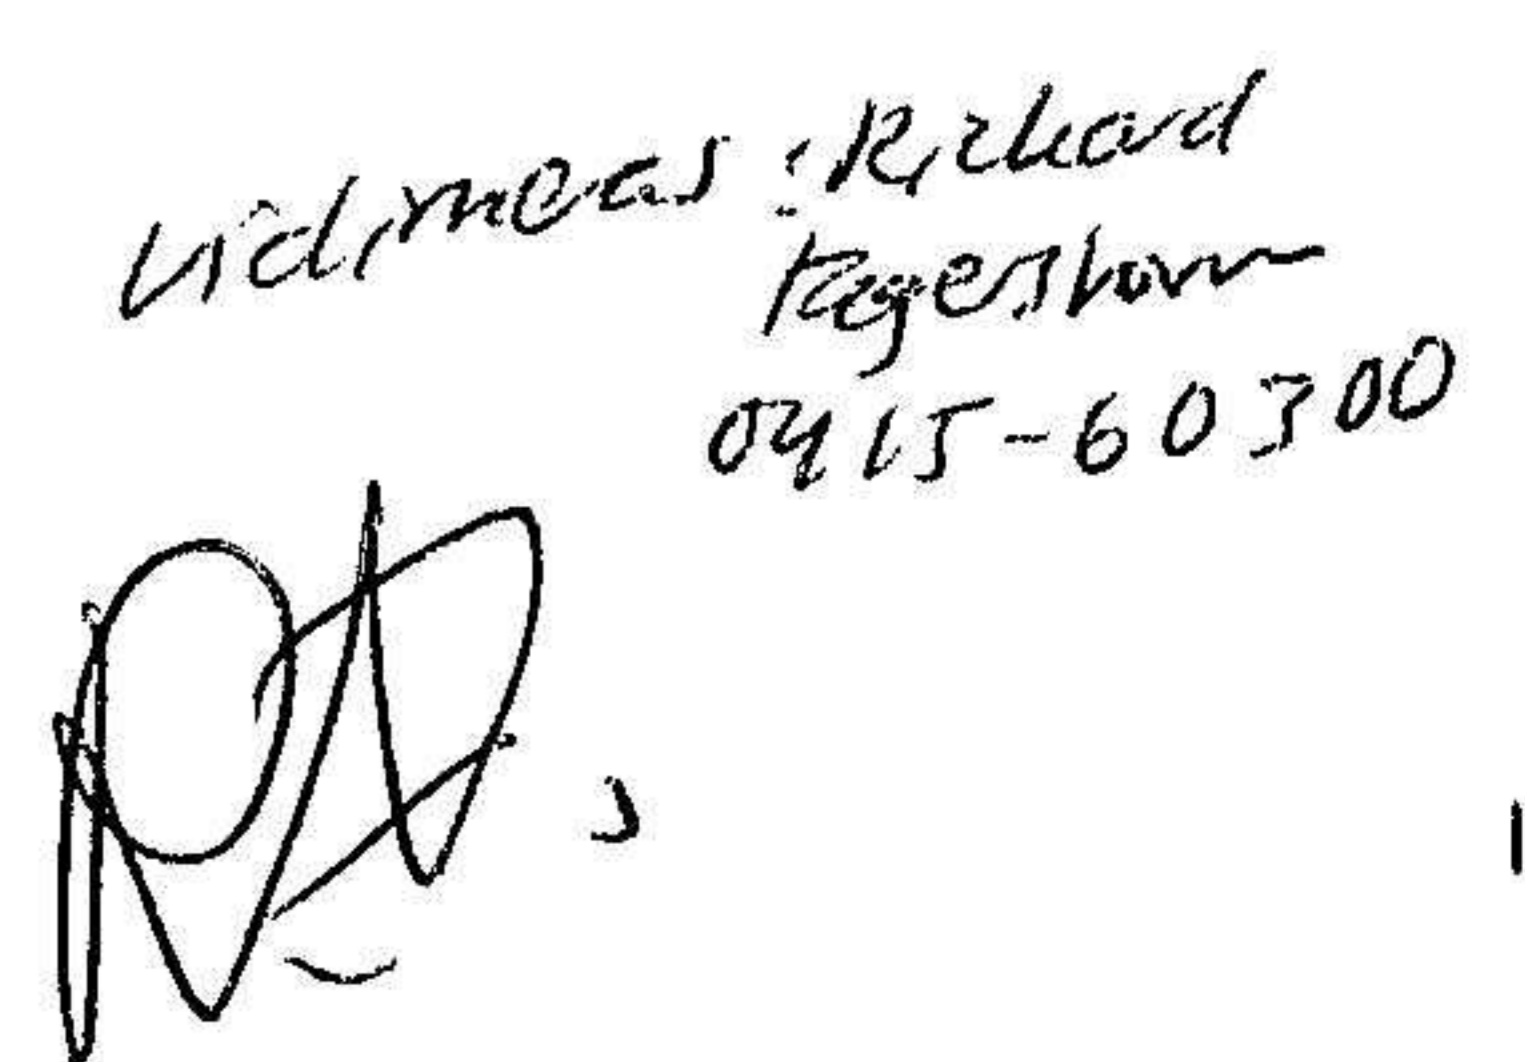 Vidimeras : Richard
Fagerström
0415-60300